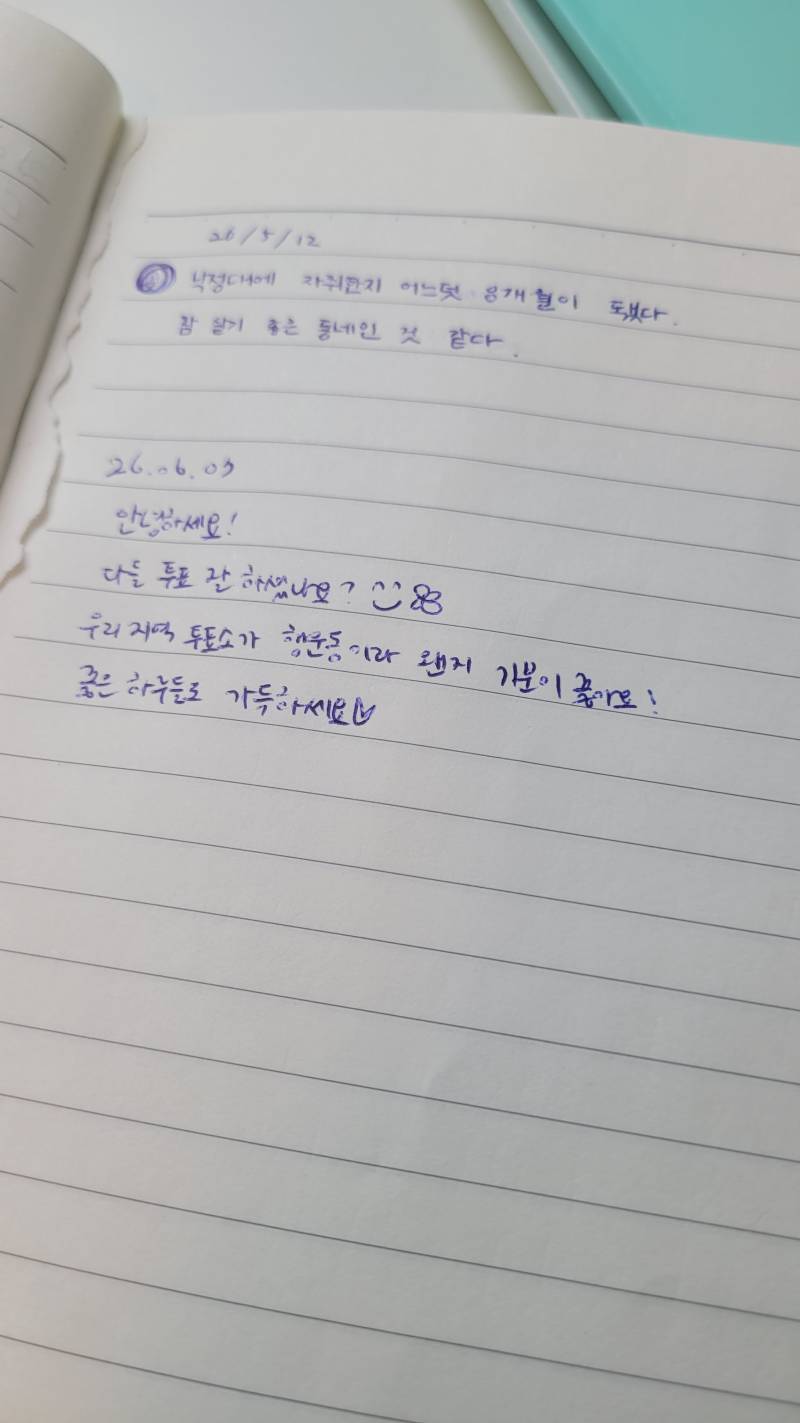 26/5/12
낙성대에 자취한지 어느덧 8개월이 됐다.
참 살기 좋은 동네인 것 같다.
26.06.03
안녕하세요!
다들 투표 잘 하셨나요?
우리 지역 투표소가 행운동이라 왠지 기분이 좋아요!
좋은 하루들로 가득하세요